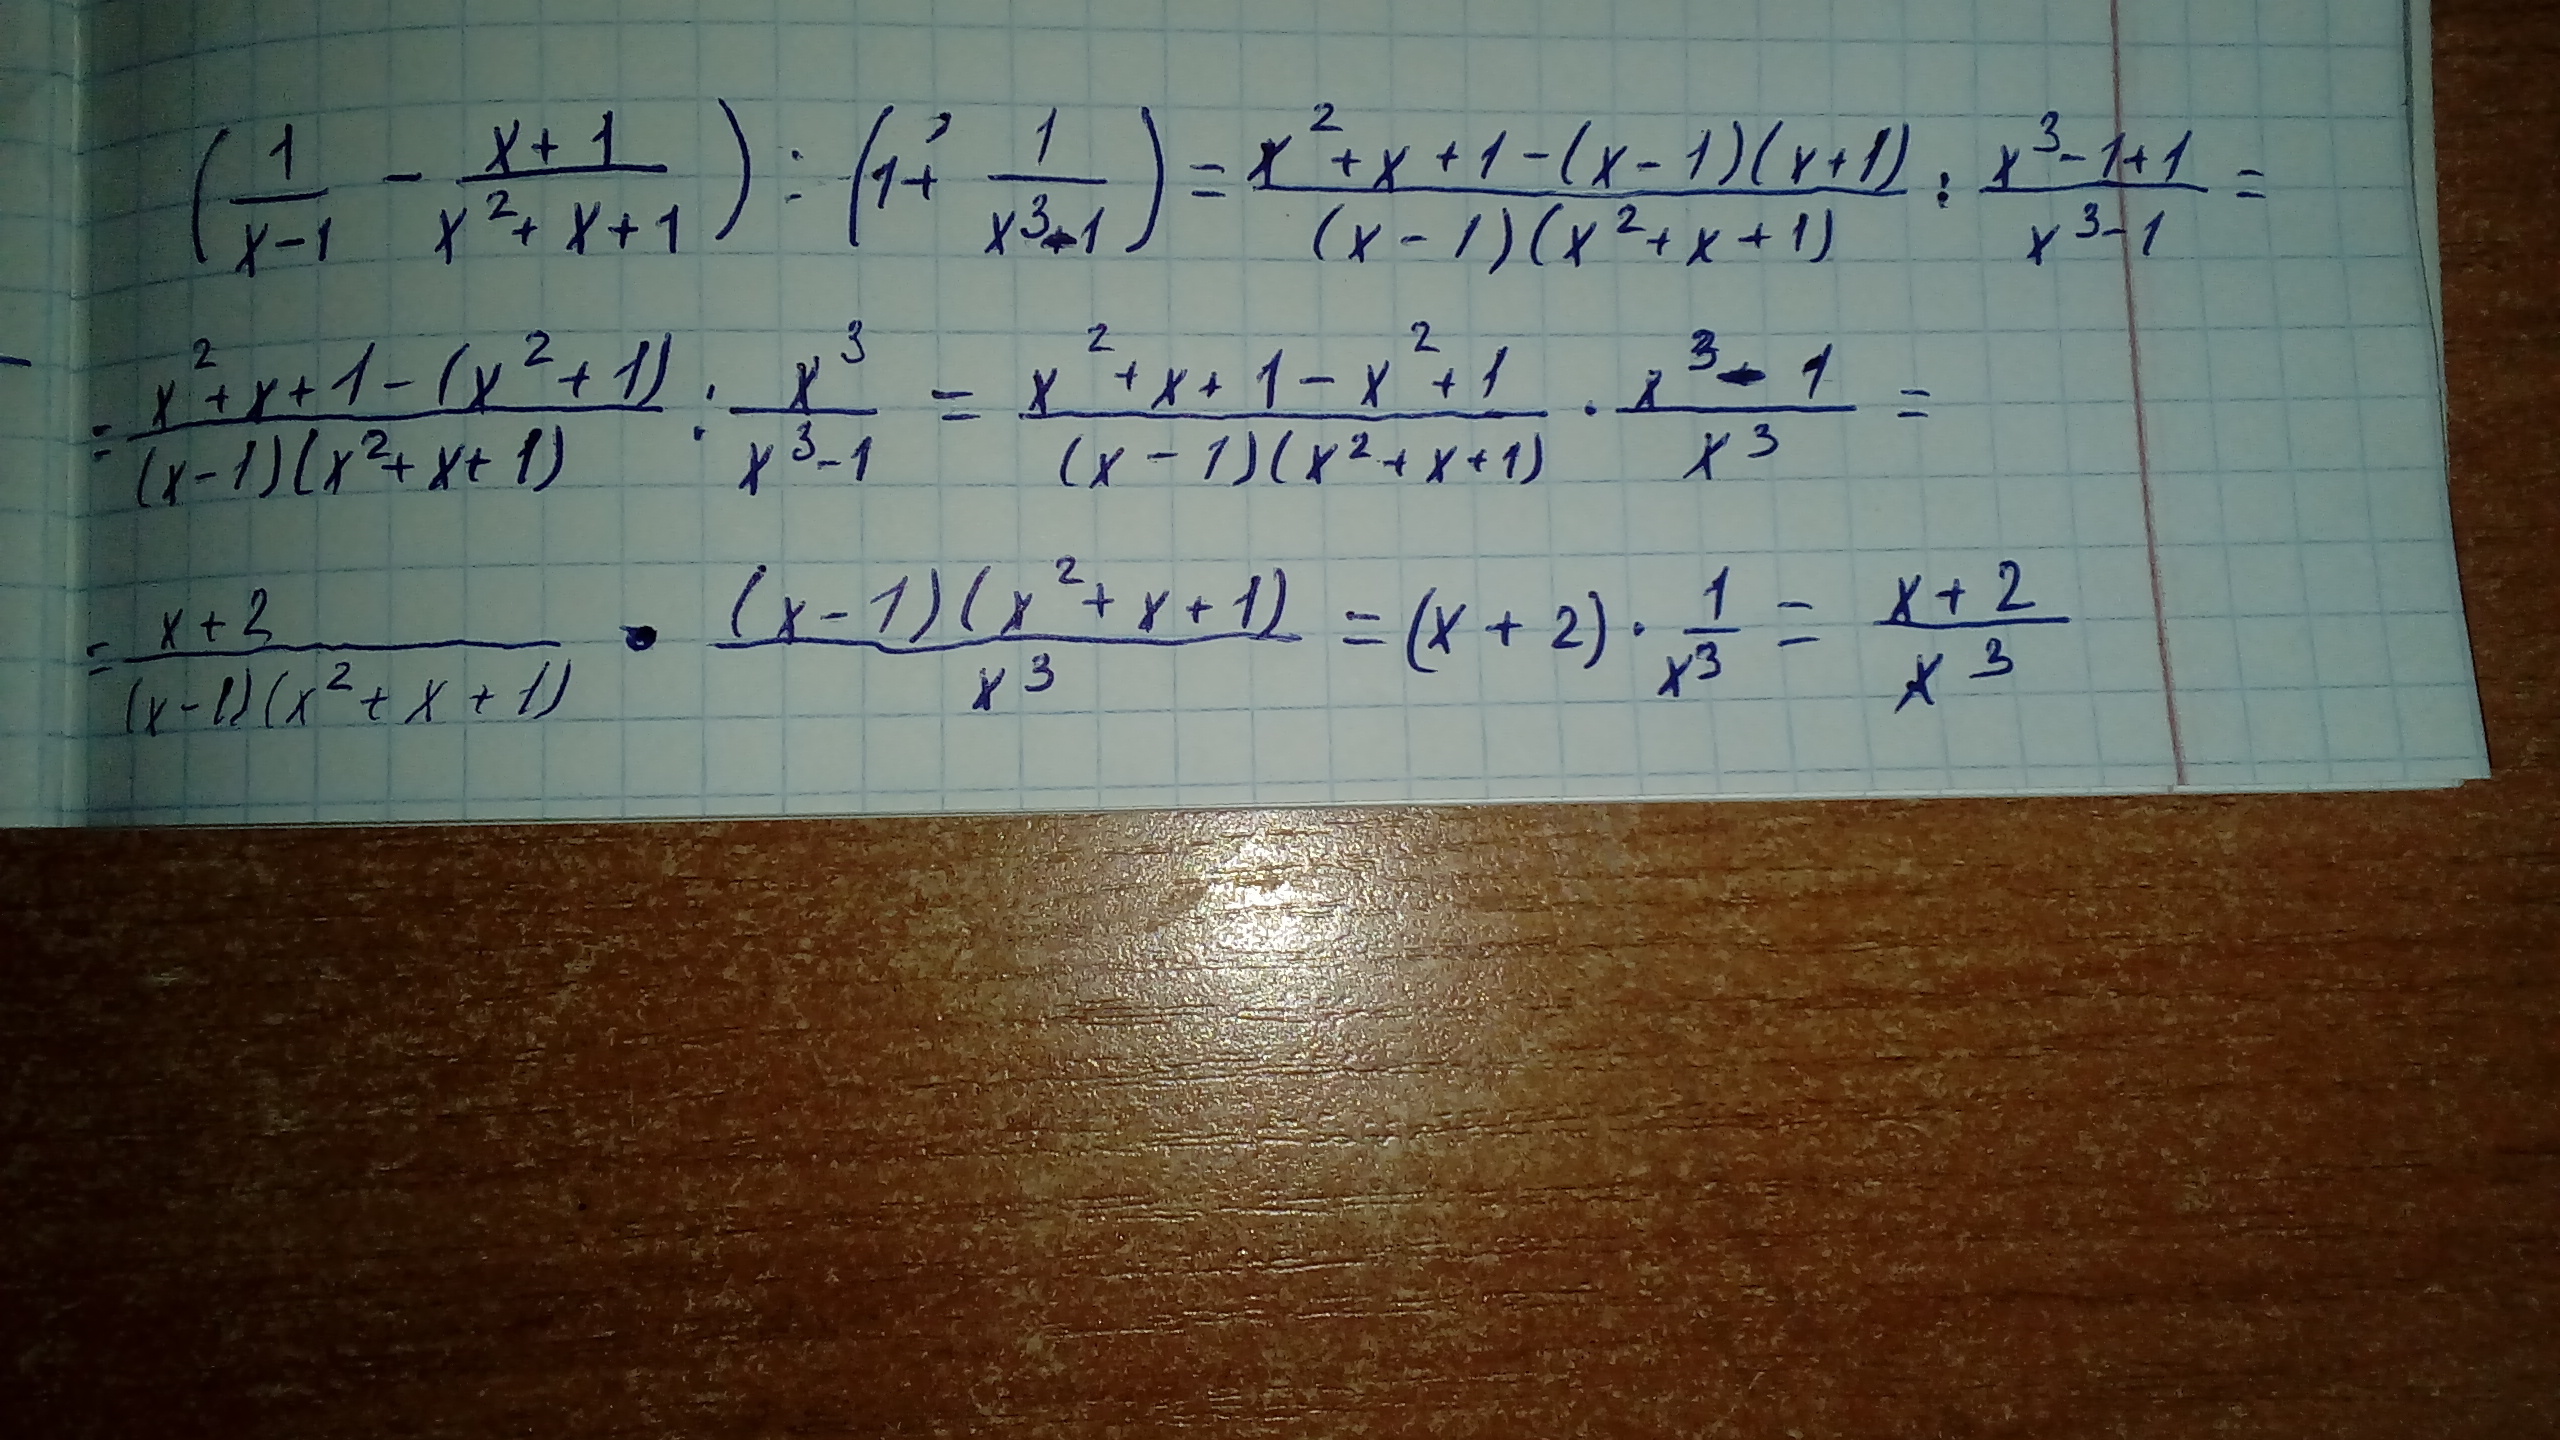 (1/(x-1) - (x+1)/(x²+x+1)) : (1+ 1/(x³-1)) = (x²+x+1-(x-1)(x+1))/((x-1)(x²+x+1)) : (x³-1+1)/(x³-1) =
= (x²+x+1-(x²+1))/((x-1)(x²+x+1)) : x³/(x³-1) = (x²+x+1-x²+1)/((x-1)(x²+x+1)) · (x³-1)/x³ =
= (x+2)/((x-1)(x²+x+1)) · ((x-1)(x²+x+1))/x³ = (x+2) · 1/x³ = (x+2)/x³